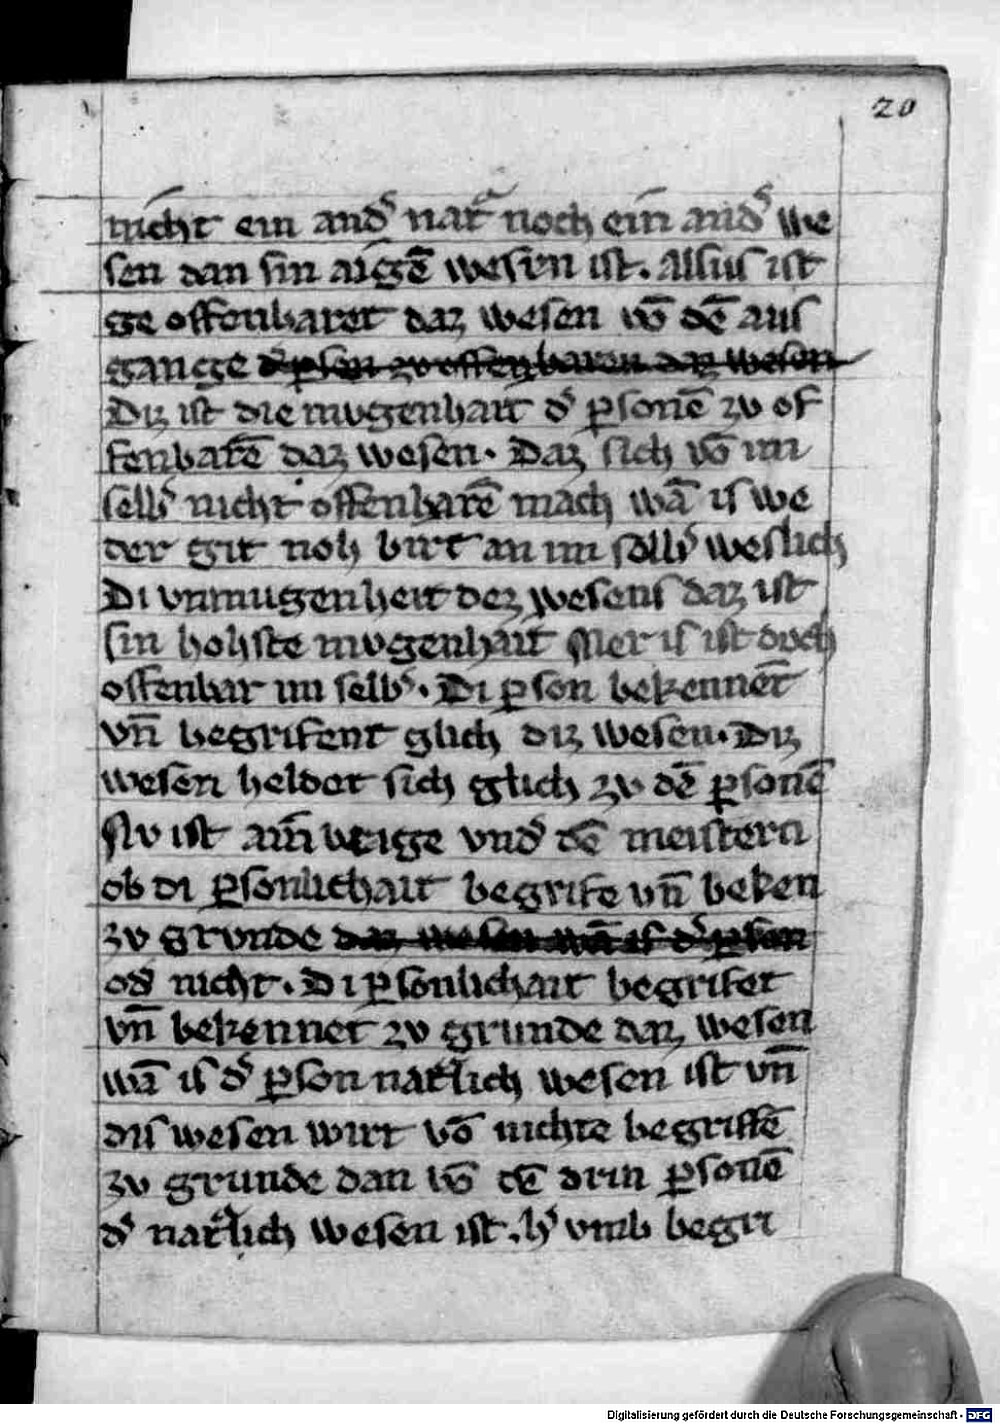 20
nicht ein andˀ natᷓ noch ein andˀ we
sen dan sin aigē wesen ist. Allus ist
ge offenbaret daz wesen vō dē aus
gange dˀ ꝑson zv offenbaren daz wesen
Diz ist die mvgenhait dˀ ꝑsonē zv of
fenbarē daz wesen. Daz sich vō im
selbˀ nicht offenbarē mach wā is we
der git noh birt an im sellbˀ weslich
Di vnmugenheit dez wesens daz ist
sin hohste mvgenhait Mer is ist doch
offenbar im selbˀ. Di ꝑson bekennēt
vn̄ begrifent glich diz wesen. Diz
wesen heldet sich glich zv dē ꝑsonē
Nv ist ain vraige vndˀ dē meistern
ob di ꝑsonlichait begrife vn̄ beken
zv grvnde daz wesen wā is dˀ ꝑson
odˀ nicht. Di ꝑsonlichait begrifet
vn̄ bekennet zv grunde daz wesen
wā is dˀ ꝑson natᷓlich wesen ist vn̄
dis wesen wirt vō nichte begriffē
zv grunde dan vō dē drin ꝑsonē
dˀ natᷓlich wesen ist. hˀ vmb begri
Digitalisierung gefördert durch die Deutsche Forschungsgemeinschaft - DFG